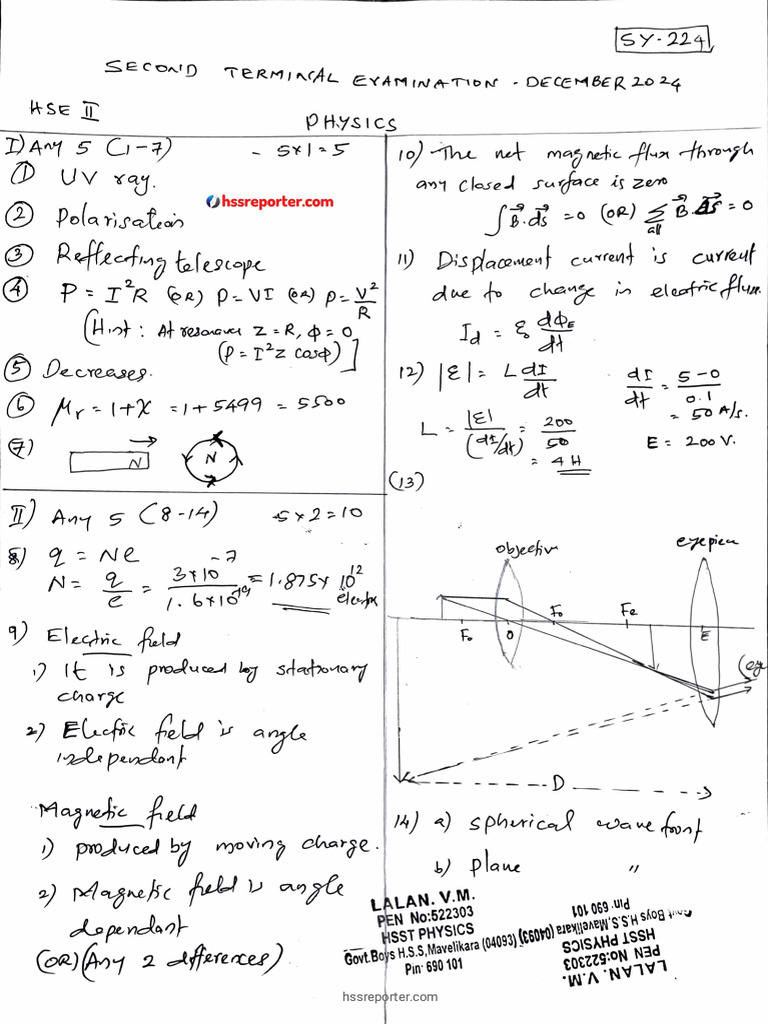 SY-224
SECOND TERMINAL EXAMINATION - DECEMBER 2024
HSE II
PHYSICS
I) Any 5 (1-7) - 5×1=5
① UV ray.
hssreporter.com
② Polarisation
③ Reflecting telescope
④ P = I²R (OR) P = VI (OR) P = V²/R
(Hint: At resonance Z = R, Φ = 0
(P = I²Z cosΦ)]
⑤ Decreases.
⑥ μr = 1+χ = 1+5499 = 5500
⑦
N N
II) Any 5 (8-14) 5×2=10
8) q = Ne
N = q/e = 3×10⁻⁷/1.6×10⁻¹⁹ = 1.875×10¹² electrons
9) Electric field
1) It is produced by stationary
charge
2) Electric field is angle
independant
Magnetic field
1) produced by moving charge.
2) Magnetic field is angle
dependant
(OR) (Any 2 differences)
10) The net magnetic flux through
any closed surface is zero
∫B⃗.ds⃗ = 0 (OR) Σ B⃗.Δs⃗ = 0
all
11) Displacement current is current
due to change in electric flux.
Id = ε dΦE/dt
12) |ε| = L dI/dt dI/dt = 5-0/0.1
= 50 A/s.
L = |ε|/(dI/dt) = 200/50 E = 200 V.
= 4 H
(13)
objective eyepiece
Fo O Fo Fe E
(eye
D
14) a) spherical wave front
b) plane "
LALAN. V.M.
PEN No:522303
HSST PHYSICS
Govt.Boys H.S.S,Mavelikara (04093)
Pin- 690 101
LALAN. V.M.
PEN No:522303
HSST PHYSICS
Boys H.S.S,Mavelikara (04093)
Pin- 690 101
hssreporter.com